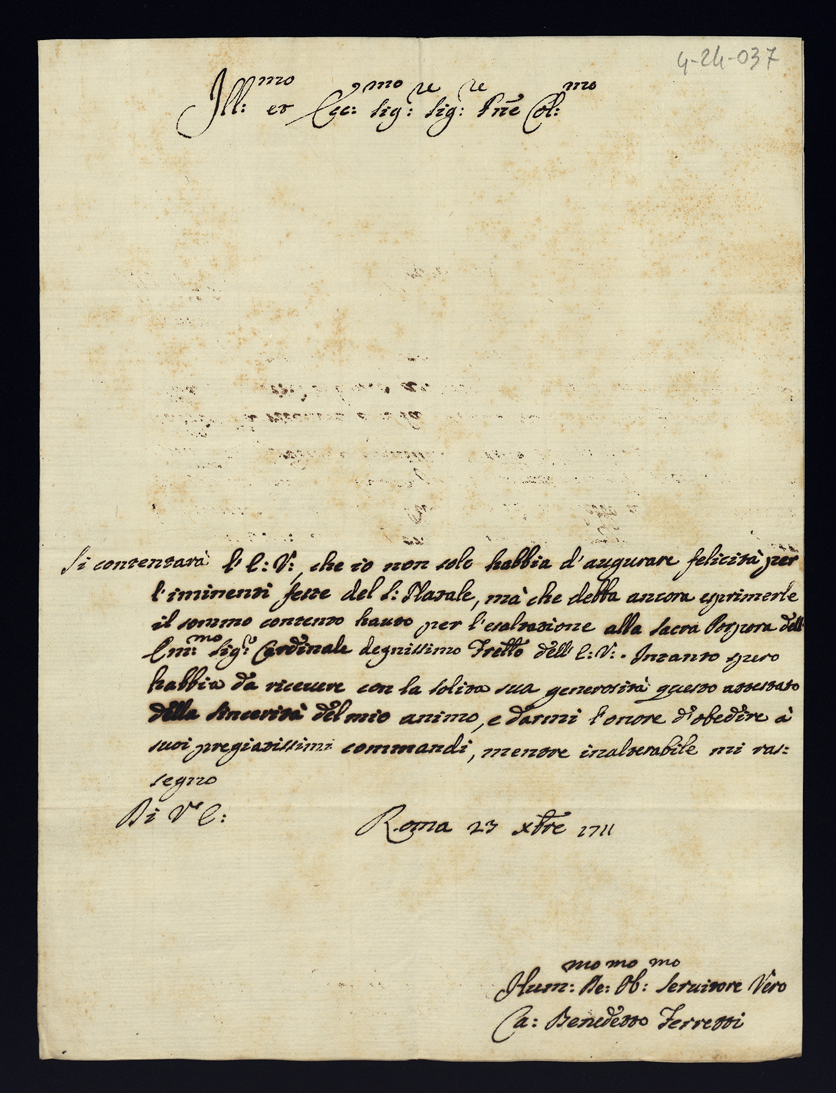 4-24-037
Ill:mo et Ecc:mo Sig:re Sig:re Pne Col:mo
Si contentarà l'E: V:, che io non solo habbia d'augurare felicità per
l'iminenti feste del S: Natale, mà che debba ancora esprimerle
il sommo contento hauto per l'esaltazione alla Sacra Porpora dell'
Em:mo Sig:r Cardinale degnissimo Frello dell'E: V:. Intanto spero
habbia da riceuere con la solita sua generosità questo attestato
della sincerità del mio animo, e darmi l'onore d'obedire à
suoi pregiatissimi commandi, mentre inalterabile mi ras:
segno
Di V: E:
Roma 23 Xbre 1711
Hum:mo De:mo Ob:mo Seruitore Vero
Ca: Benedetto Ferretti